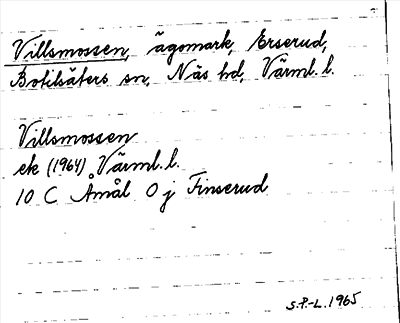 Villsmossen, ägomark, Erserud,
Botilsäters sn, Näs hd, Värml. l.
Villsmossen
ek (1964) Värml. l.
10 C Åmål 0 j Finserud
S.P.-L. 1965